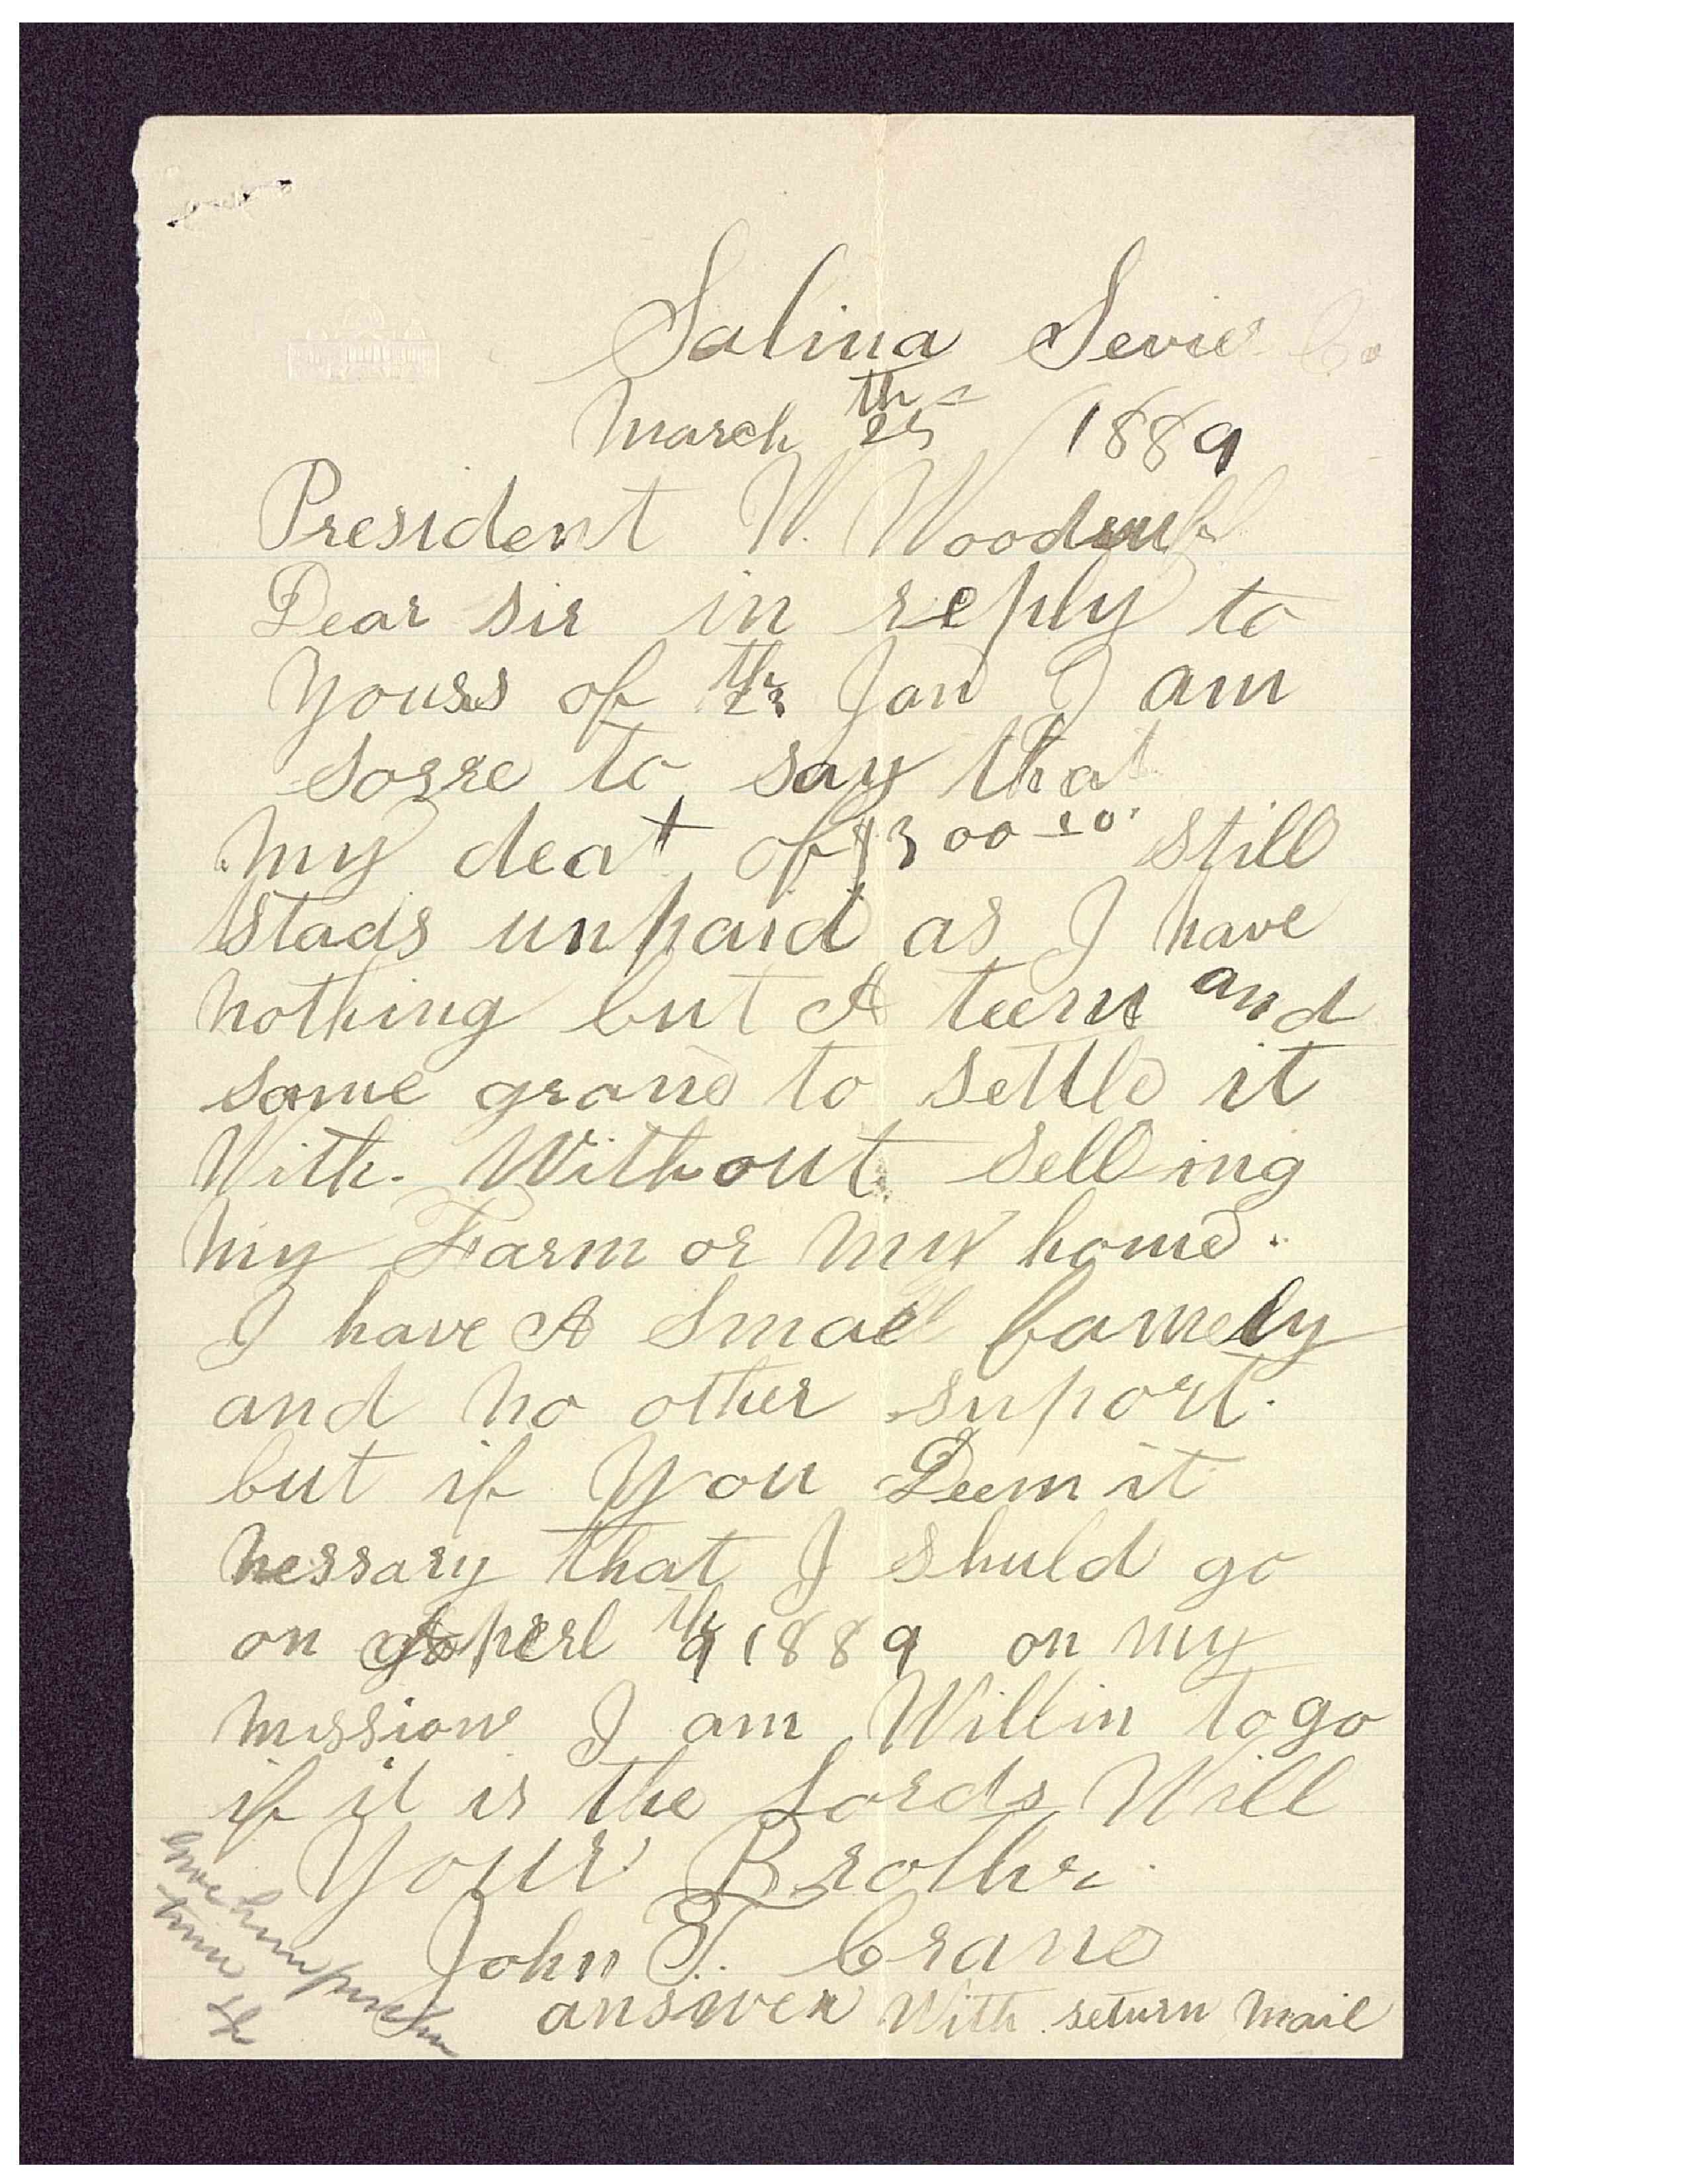 Salina Sevier Co
March 25th 1889
President W. Woodruff
Dear sir in reply to
yours of 23th Jan I am
sorre to say that
my deat of $300 00 still
stads unpaid as I have
nothing but A teem and
some grane to settle it
With. Without selling
my Farm or my home.
I have A Small famely
and no other suport.
but if you Deem it
nessary that I shuld go
on Aperl 9th 1889 on my
mission I am Willin to go
if it is the Lords Will
Your Brother
John T. Crane
answer With return mail
Give him
time